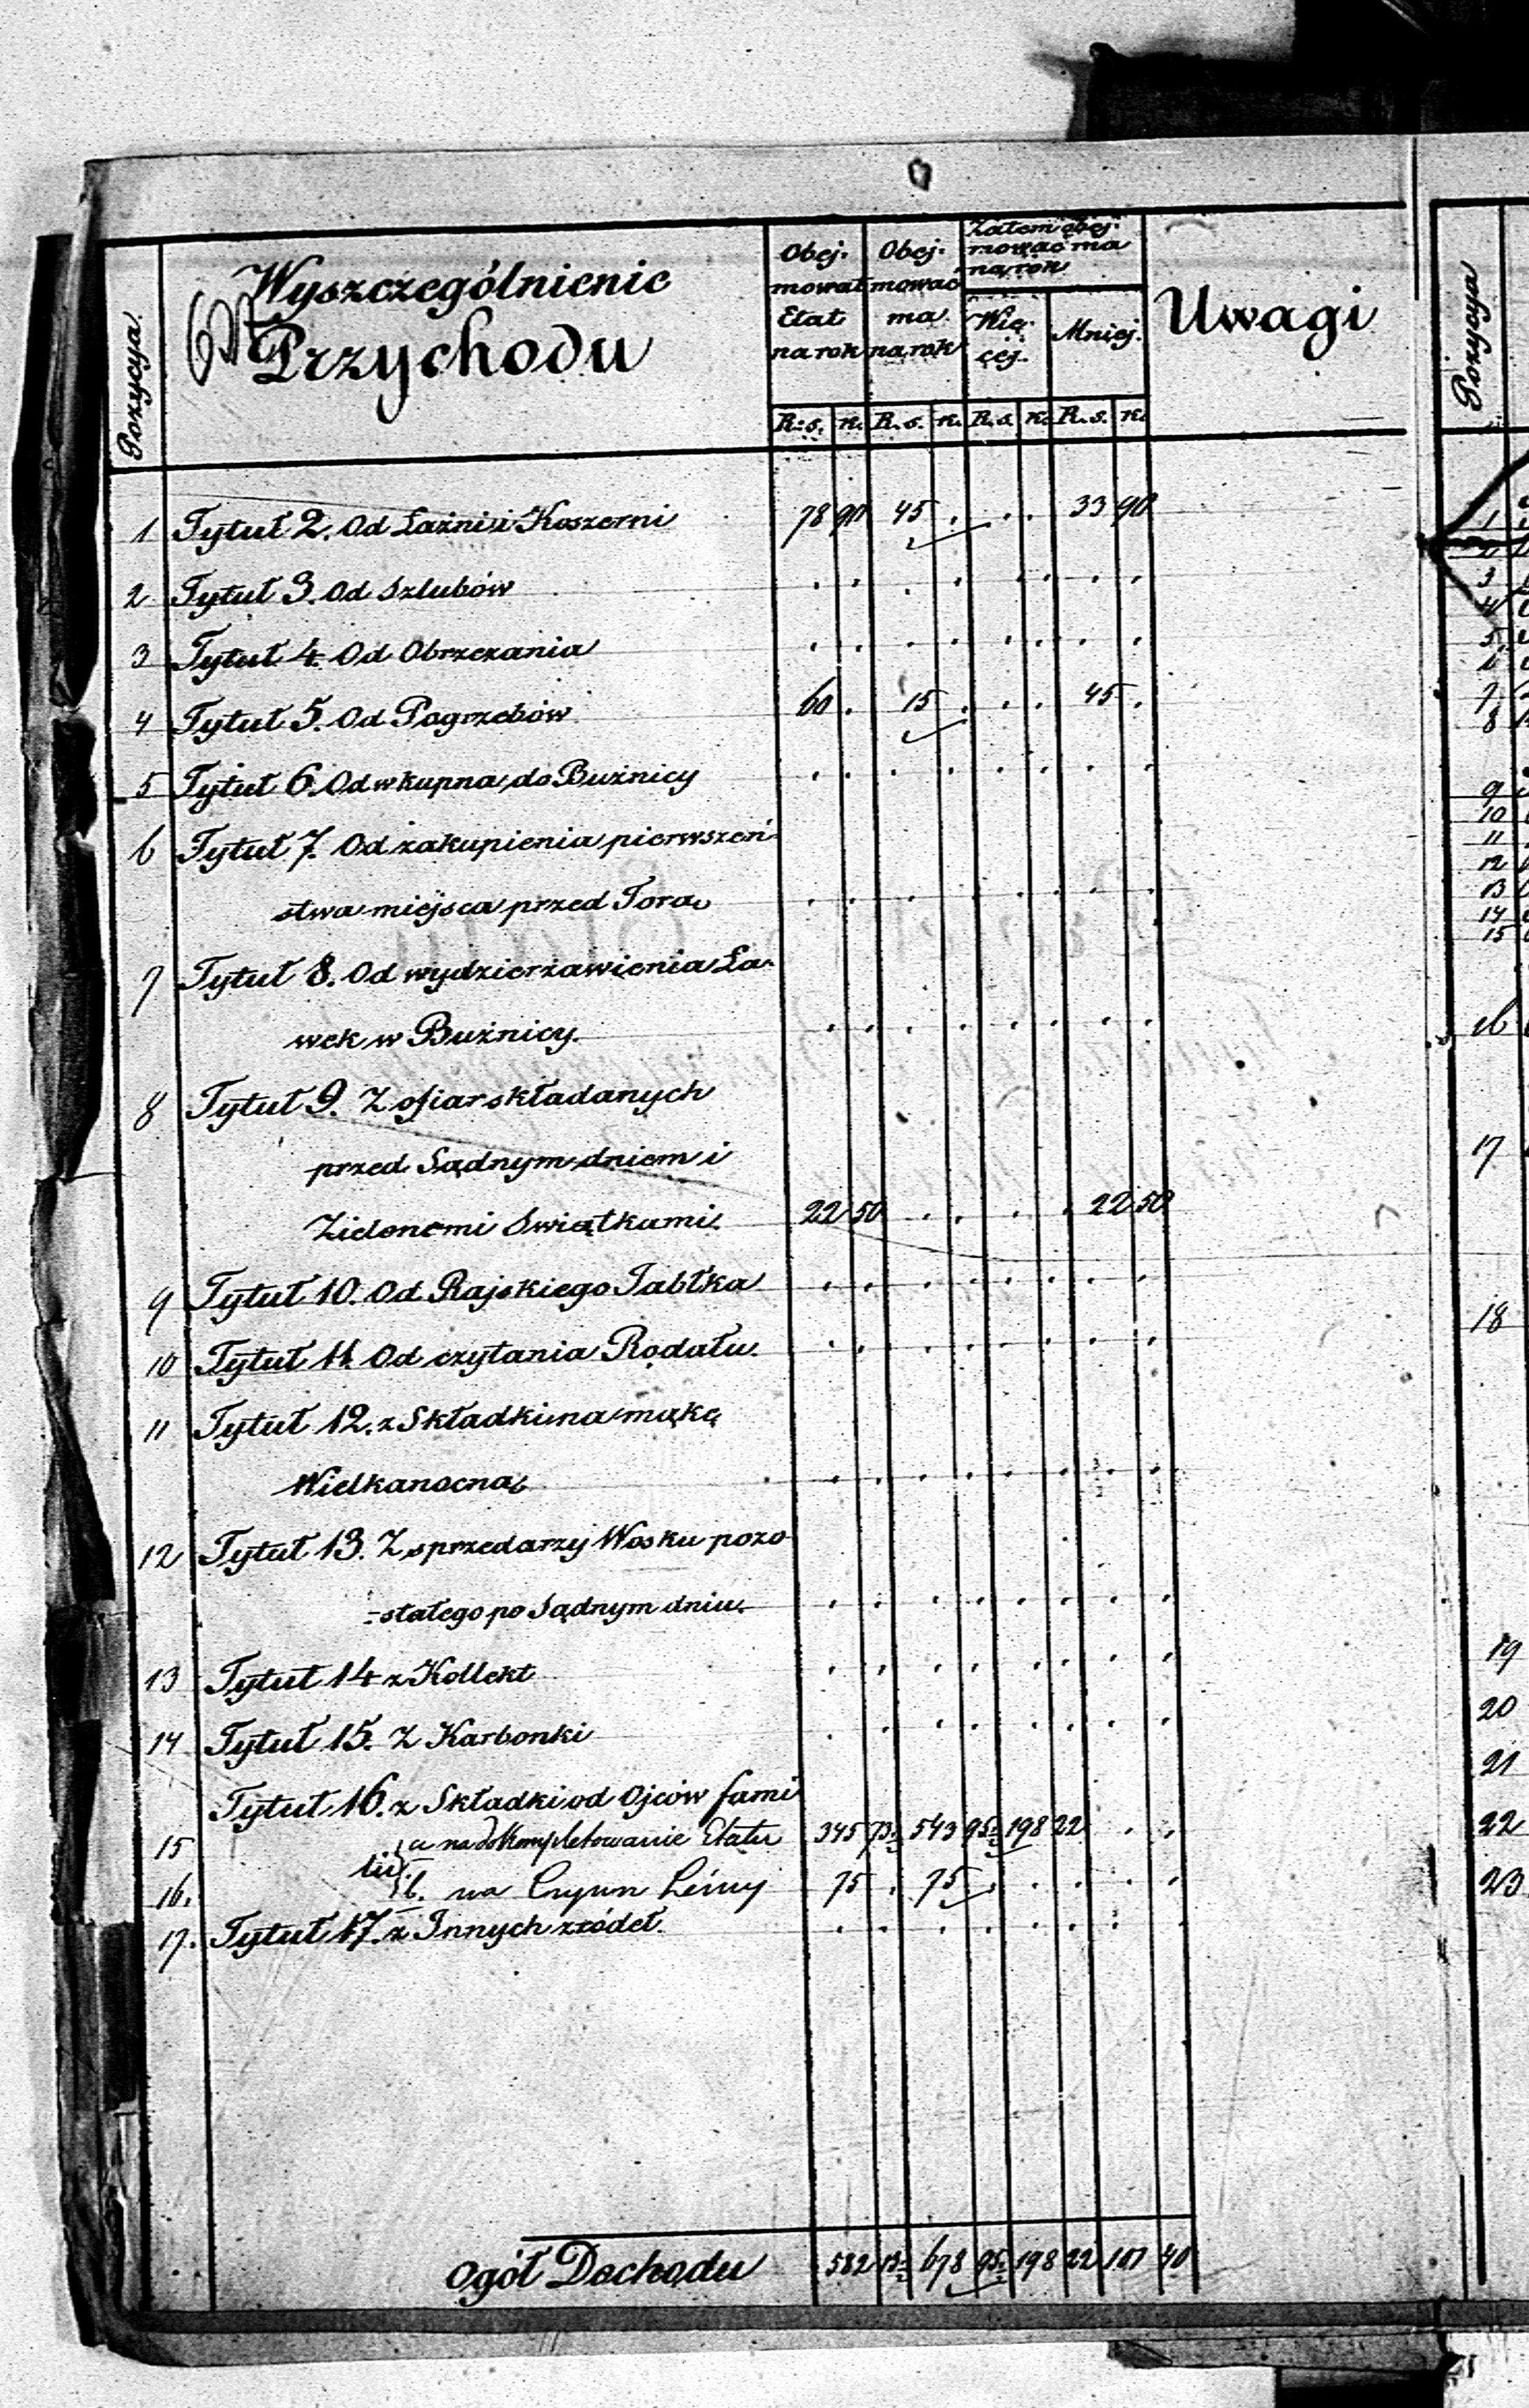 Pozycya.
Wyszczególnienie
Przychodu
Obej-
mował
Etat
na rok
Obej-
mować
ma
na rok
Zatem obej-
mować ma
na rok
Wię-
cej.
Mniej.
Uwagi
R: s. K. R. s. K. R. s. K. R. s. K.
1 Tytuł 2. Od Łaźni i Koszerni 78 90 45 . . . 33 90
2 Tytuł 3. Od Szlubów . . . . . . . .
3 Tytuł 4. Od Obrzezania . . . . . . . .
4 Tytuł 5. Od Pogrzebów 60 . 15 . . . 45 .
5 Tytuł 6. Od wkupna do Bużnicy . . . . . . . .
6 Tytuł 7. Od zakupienia pierwszeń-
stwa miejsca przed Torą . . . . . . . .
7 Tytuł 8. Od wydzierżawienia Ła-
wek w Bużnicy. . . . . . . . .
8 Tytuł 9. Z ofiar składanych
przed Sądnym dniem i
Zielonemi Swiątkami. 22 50 . . . . 22 50
9 Tytuł 10. Od Rajskiego Jabłka . . . . . . . .
10 Tytuł 11. Od czytania Rodału. . . . . . . . .
11 Tytuł 12. z Składki na mąkę
Wielkanocną . . . . . . . .
12 Tytuł 13. Z sprzedarzy Wosku pozo-
-stałego po Sądnym dniu. . . . . . . . .
13 Tytuł 14 z Kollekt . . . . . . . .
14 Tytuł 15. Z Karbonki . . . . . . . .
Tytuł 16. z Składki od Ojców fami
15 a na dokompletowanie Etatu 345 73 543 95 198 22 . .
lii
16. b. na 75 . 75 . . . . .
17. Tytuł 17. z Innych zródeł. . . . . . . . .
Ogół Dochodu 582 13 678 95 198 22 101 40
Pozycya
1
2
3
4
5
6
7
8
9
10
11
12
13
14
15
16
17
18
19
20
21
22
23